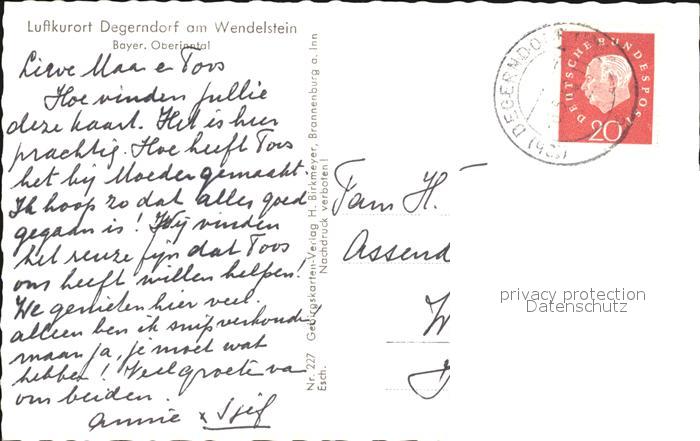 Luftkurort Degerndorf am Wendelstein
Bayer. Oberinntal
Lieve Maa e Toos
Hoe vinden jullie
deze kaart. Het is hier
prachtig. Hoe heeft Toos
het bij Moeder gemaakt.
Ik hoop zo dat alles goed
gegaan is! Wij vinden
het reuze fijn dat Toos
ons heeft willen helpen!
We genieten hier veel.
alleen ben ik snipverkouden
maar ja, je moet wat
hebben! Veel groeten va
ons beiden.
Annie x Sjef
Nr. 227 Gebirgskarten-Verlag H. Birkmeyer, Brannenburg a. Inn
Esch. Nachdruck verboten!
(13b) DEGERNDO
DEUTSCHE BUNDESPOST
20
Fam H.
Assend
privacy protection
Datenschutz